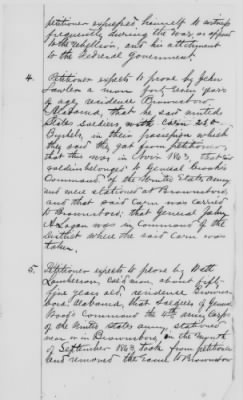 petitioner expressed himself to witness
frequently during the war, as opposed
to the rebellion, and his attachment
to the Federal Government.
4. Petitioner expects to prove by John
a man forty seven years
of age, residence Brownsboro
Alabama, that he said United
States soldiers, with corn 250
Bushels, in their possession which
they said they got from petitioner,
that this was in Nov. 1863, that said
soldiers belonged to General
Command of the United States Army
and were stationed at Brownsboro,
and that said corn was carried
to Brownsboro; that General John
A Logan was in command of the
district where the said corn was
taken.
5. Petitioner expects to prove by Watt
Lamberson, Col'd man, about fifty-
five years old, residence Browns-
boro, Alabama, that soldiers of General
Wood's Command the 4th army Corps
of the United States army, stationed
near in Brownsboro, in the month
of September 1863, took from petitioner
and removed the same to Brownsboro